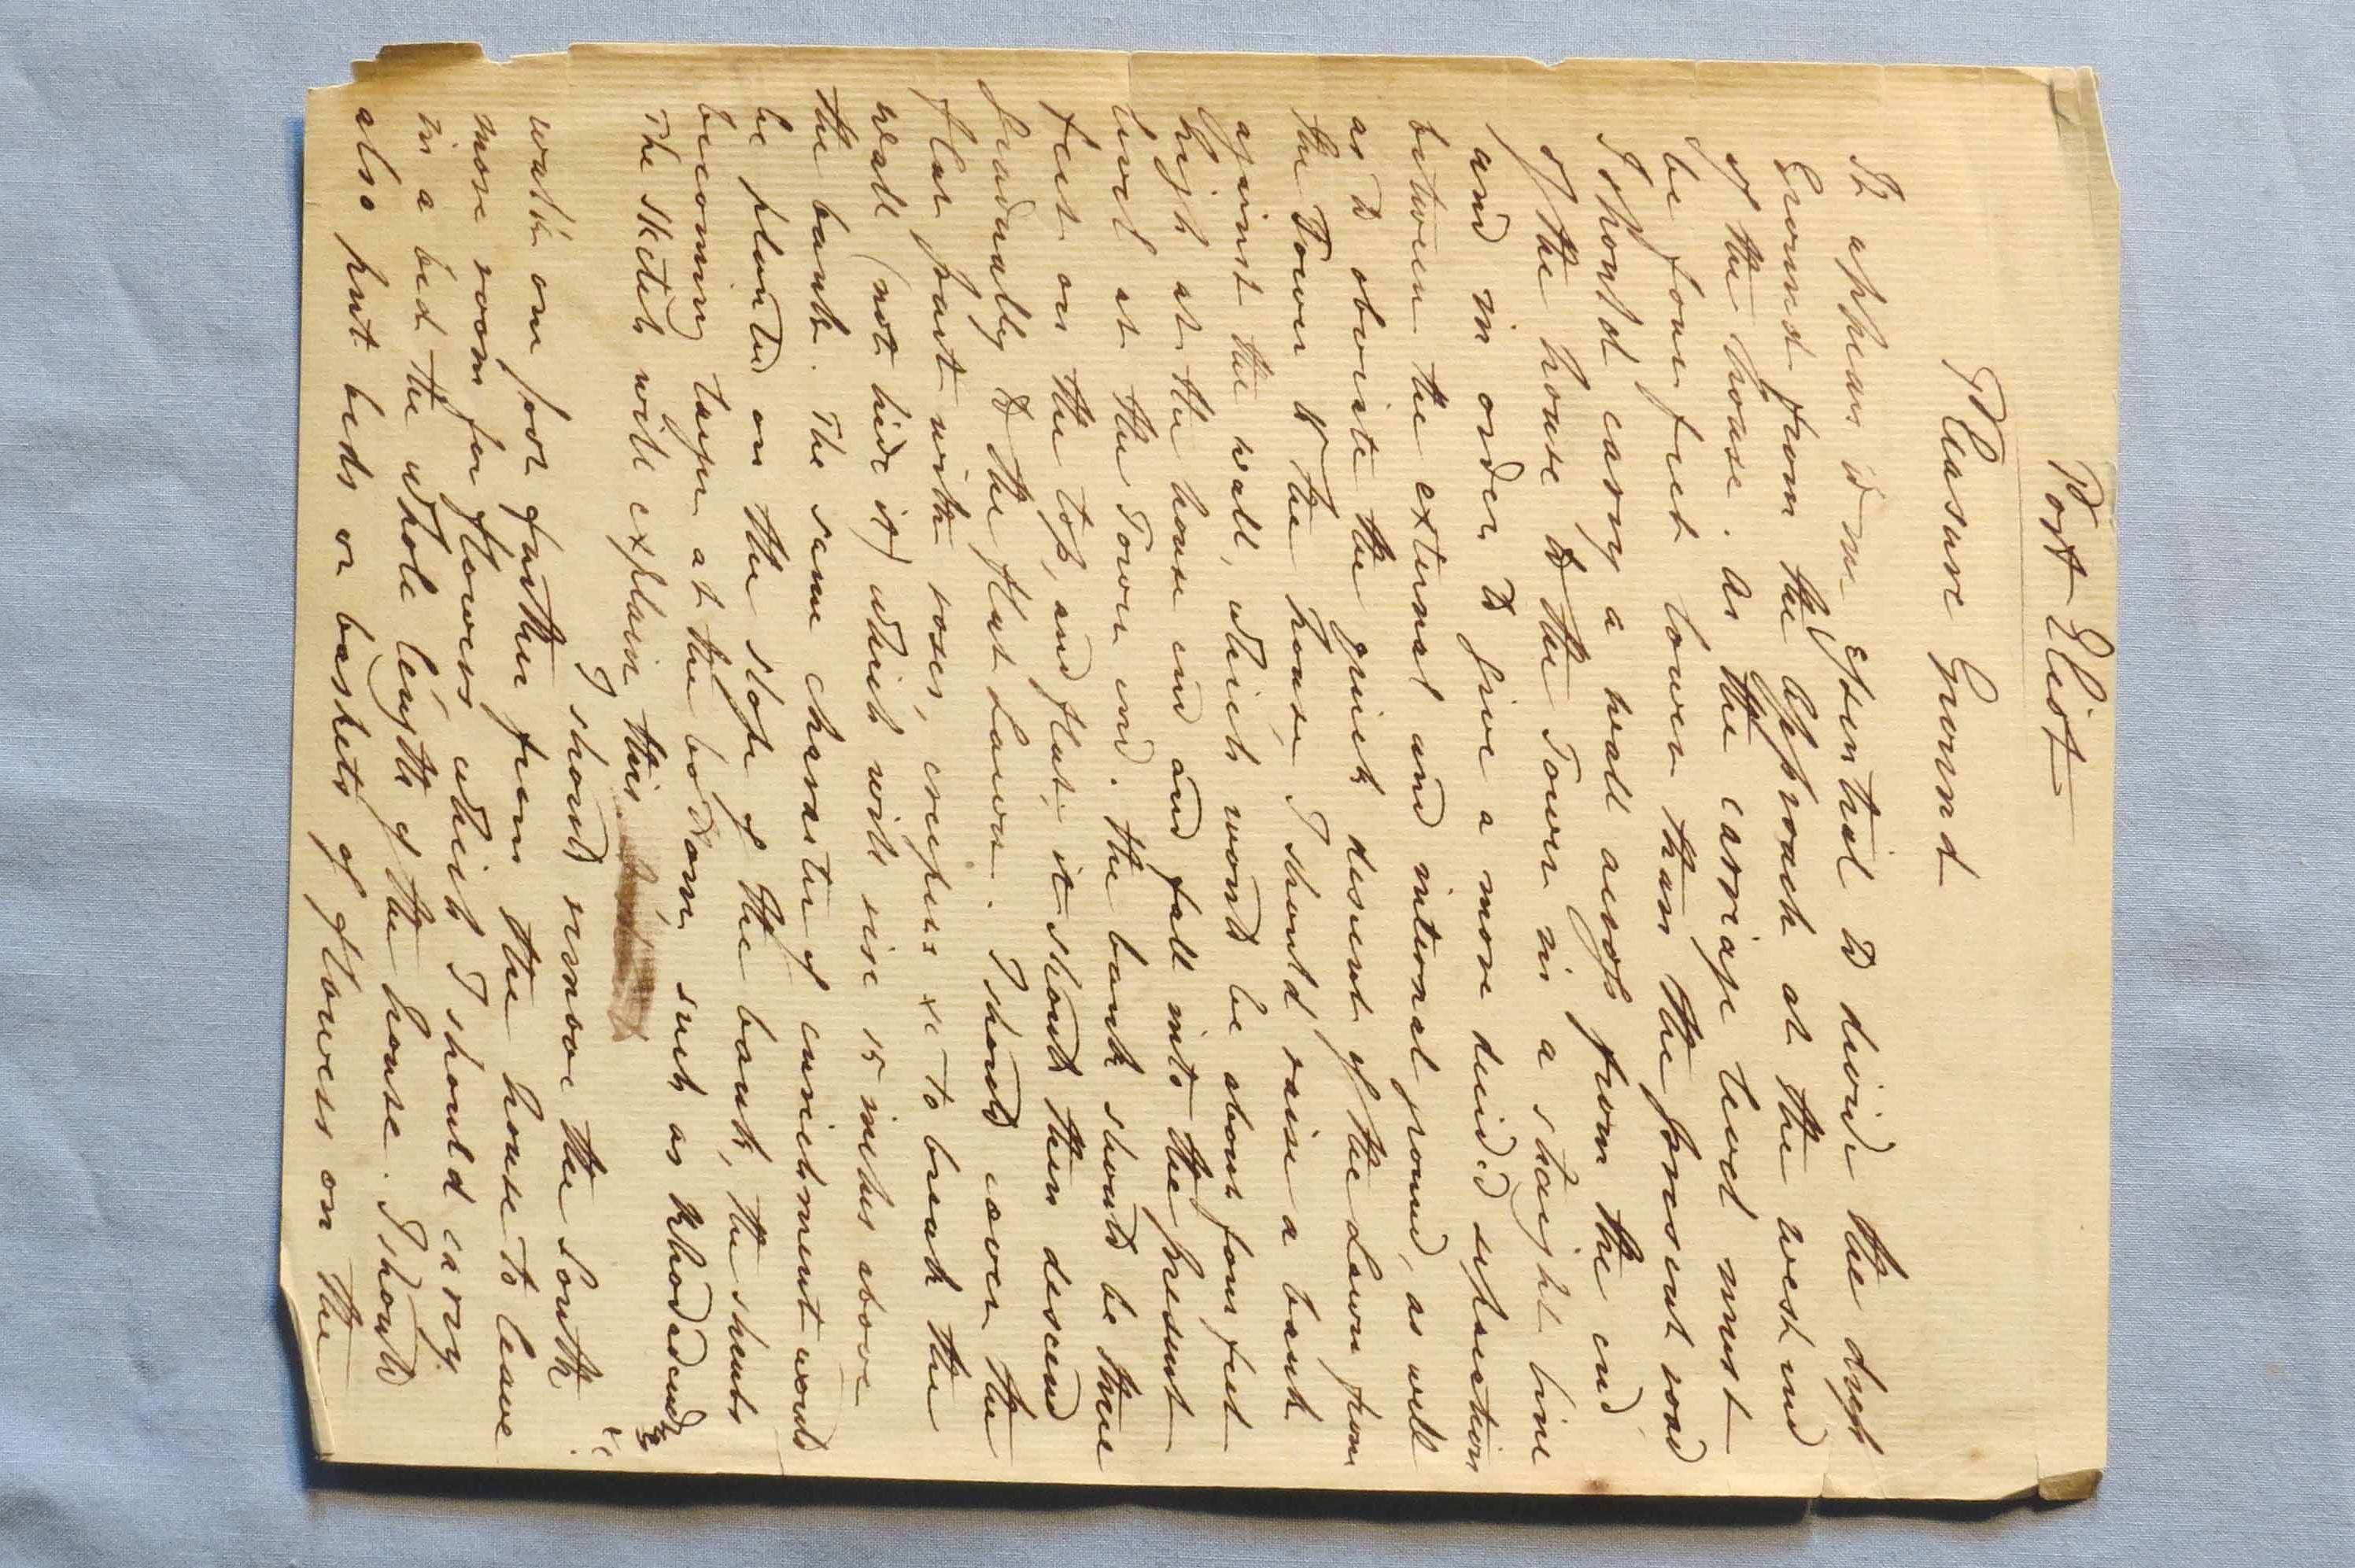 Port Eliot
Pleasure Ground
It appears to me essential to divide the dress
Ground from the Approach at the west end
of the house. As the carriage level must
be four feet lower than the present road
I should carry a wall across from the end
of the house to the Tower in a straight line
and in order to give a more decided separation
between the external and internal ground, as well
as to obviate the quick descent of the Lawn from
the Tower to the house, I should raise a bank
against the wall, which would be about four feet
high at the house end and fall into the present
level at the Tower end. The bank should be three
feet on the top, and flat; it should then descend
gradually to the flat Lawn. I should cover the
flat part with roses, creepers &c to break the
wall (not hide it) which will rise 15 inches above
the bank. The same character of enrichment would
be planted on the slope of the bank, the shrubs
becoming larger at the bottom, such as Rhododendrons
&c.
The sketch will explain this.
I should remove the South
walk one foot further from the house to leave
more room for flowers, which I should carry
in a bed the whole length of the house. I should
also put beds or baskets of flowers on the